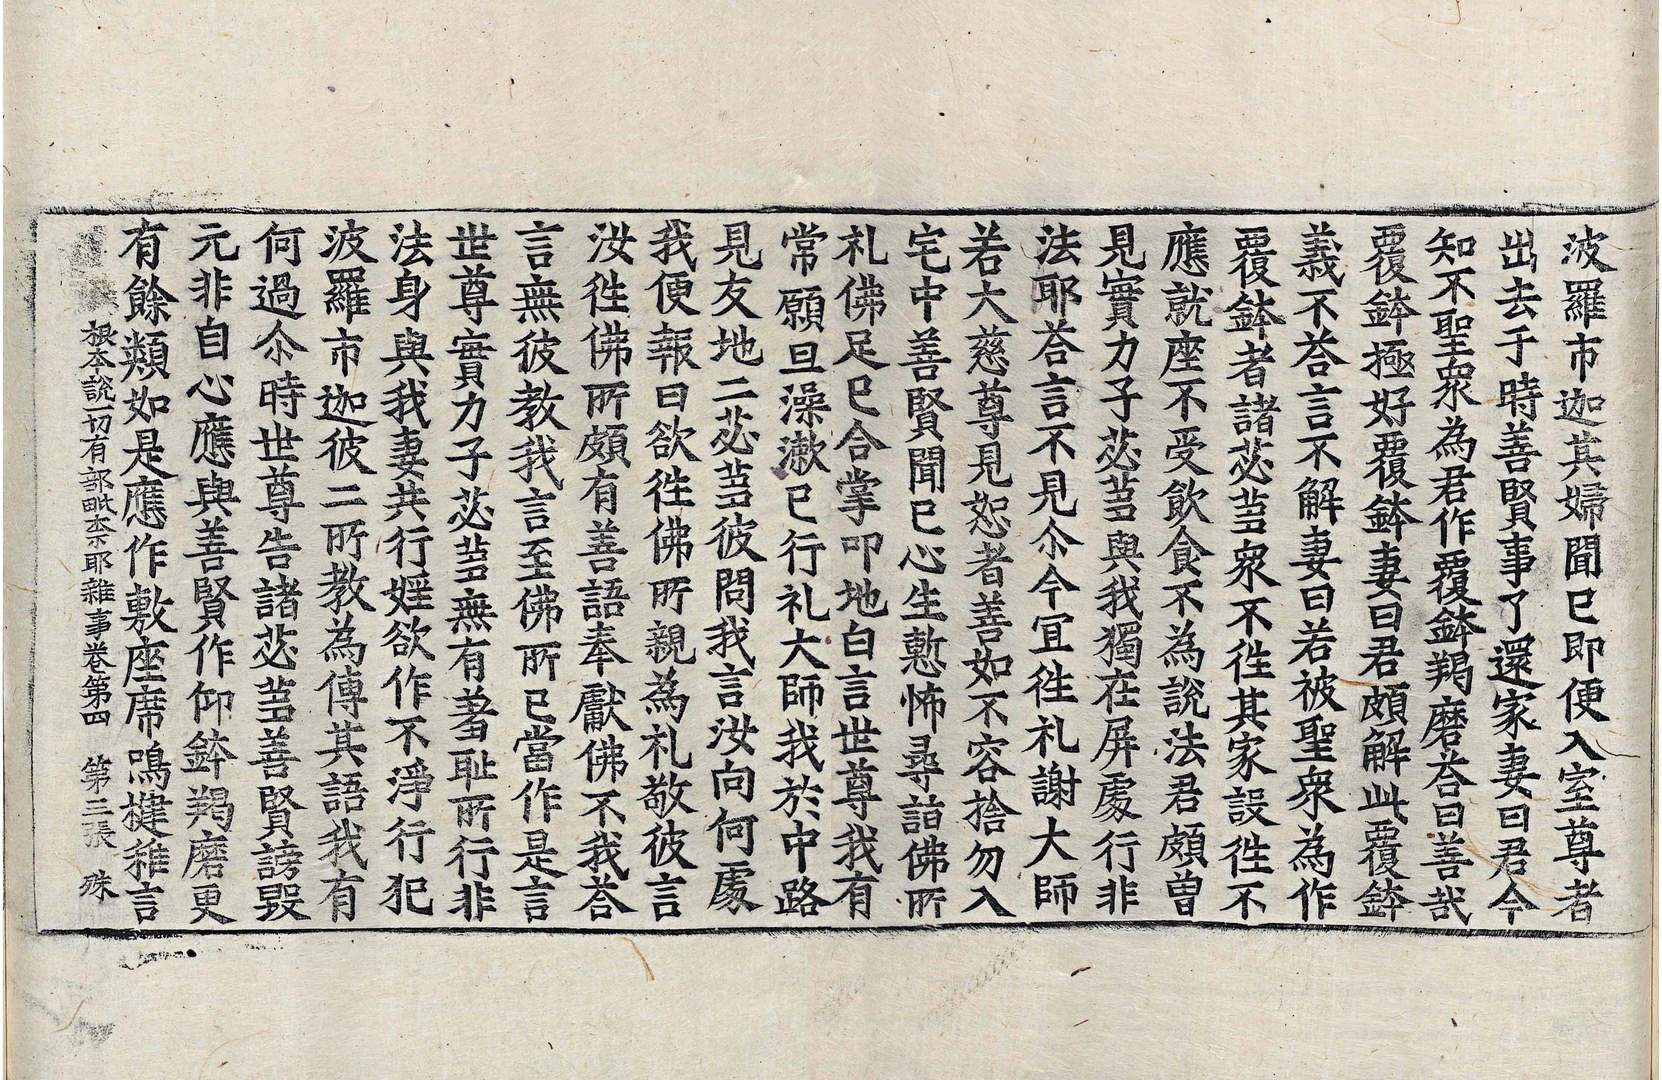 波羅市迦其婦聞已即便入室尊者
出去于時善賢事了還家妻曰君今
知不聖衆為君作覆鉢羯磨荅曰善哉
覆鉢極好覆鉢妻曰君頗解此覆鉢
義不荅言不解妻曰若被聖衆為作
覆鉢者諸苾蒭衆不徃其家設徃不
應就座不受飲食不為說法君頗曾
見實力子苾蒭與我獨在屏處行非
法耶荅言不見尒今冝徃礼謝大師
若大慈尊見恕者善如不容捨勿入
宅中善賢聞已心生慙怖尋詣佛所
礼佛足已合掌叩地白言世尊我有
常願旦澡漱已行礼大師我於中路
見友地二苾蒭彼問我言汝向何處
我便報曰欲徃佛所親為礼敬彼言
汝徃佛所頗有善語奉獻佛不我荅
言無彼教我言至佛所已當作是言
世尊實力子苾蒭無有羞耻所行非
法身與我妻共行婬欲作不淨行犯
波羅市迦彼二所教為傳其語我有
何過尒時世尊告諸苾蒭善賢謗毀
元非自心應與善賢作仰鉢羯磨更
有餘類如是應作敷座席鳴揵稚言
根本說一切有部毗奈耶雜事卷第四　第三張　殊